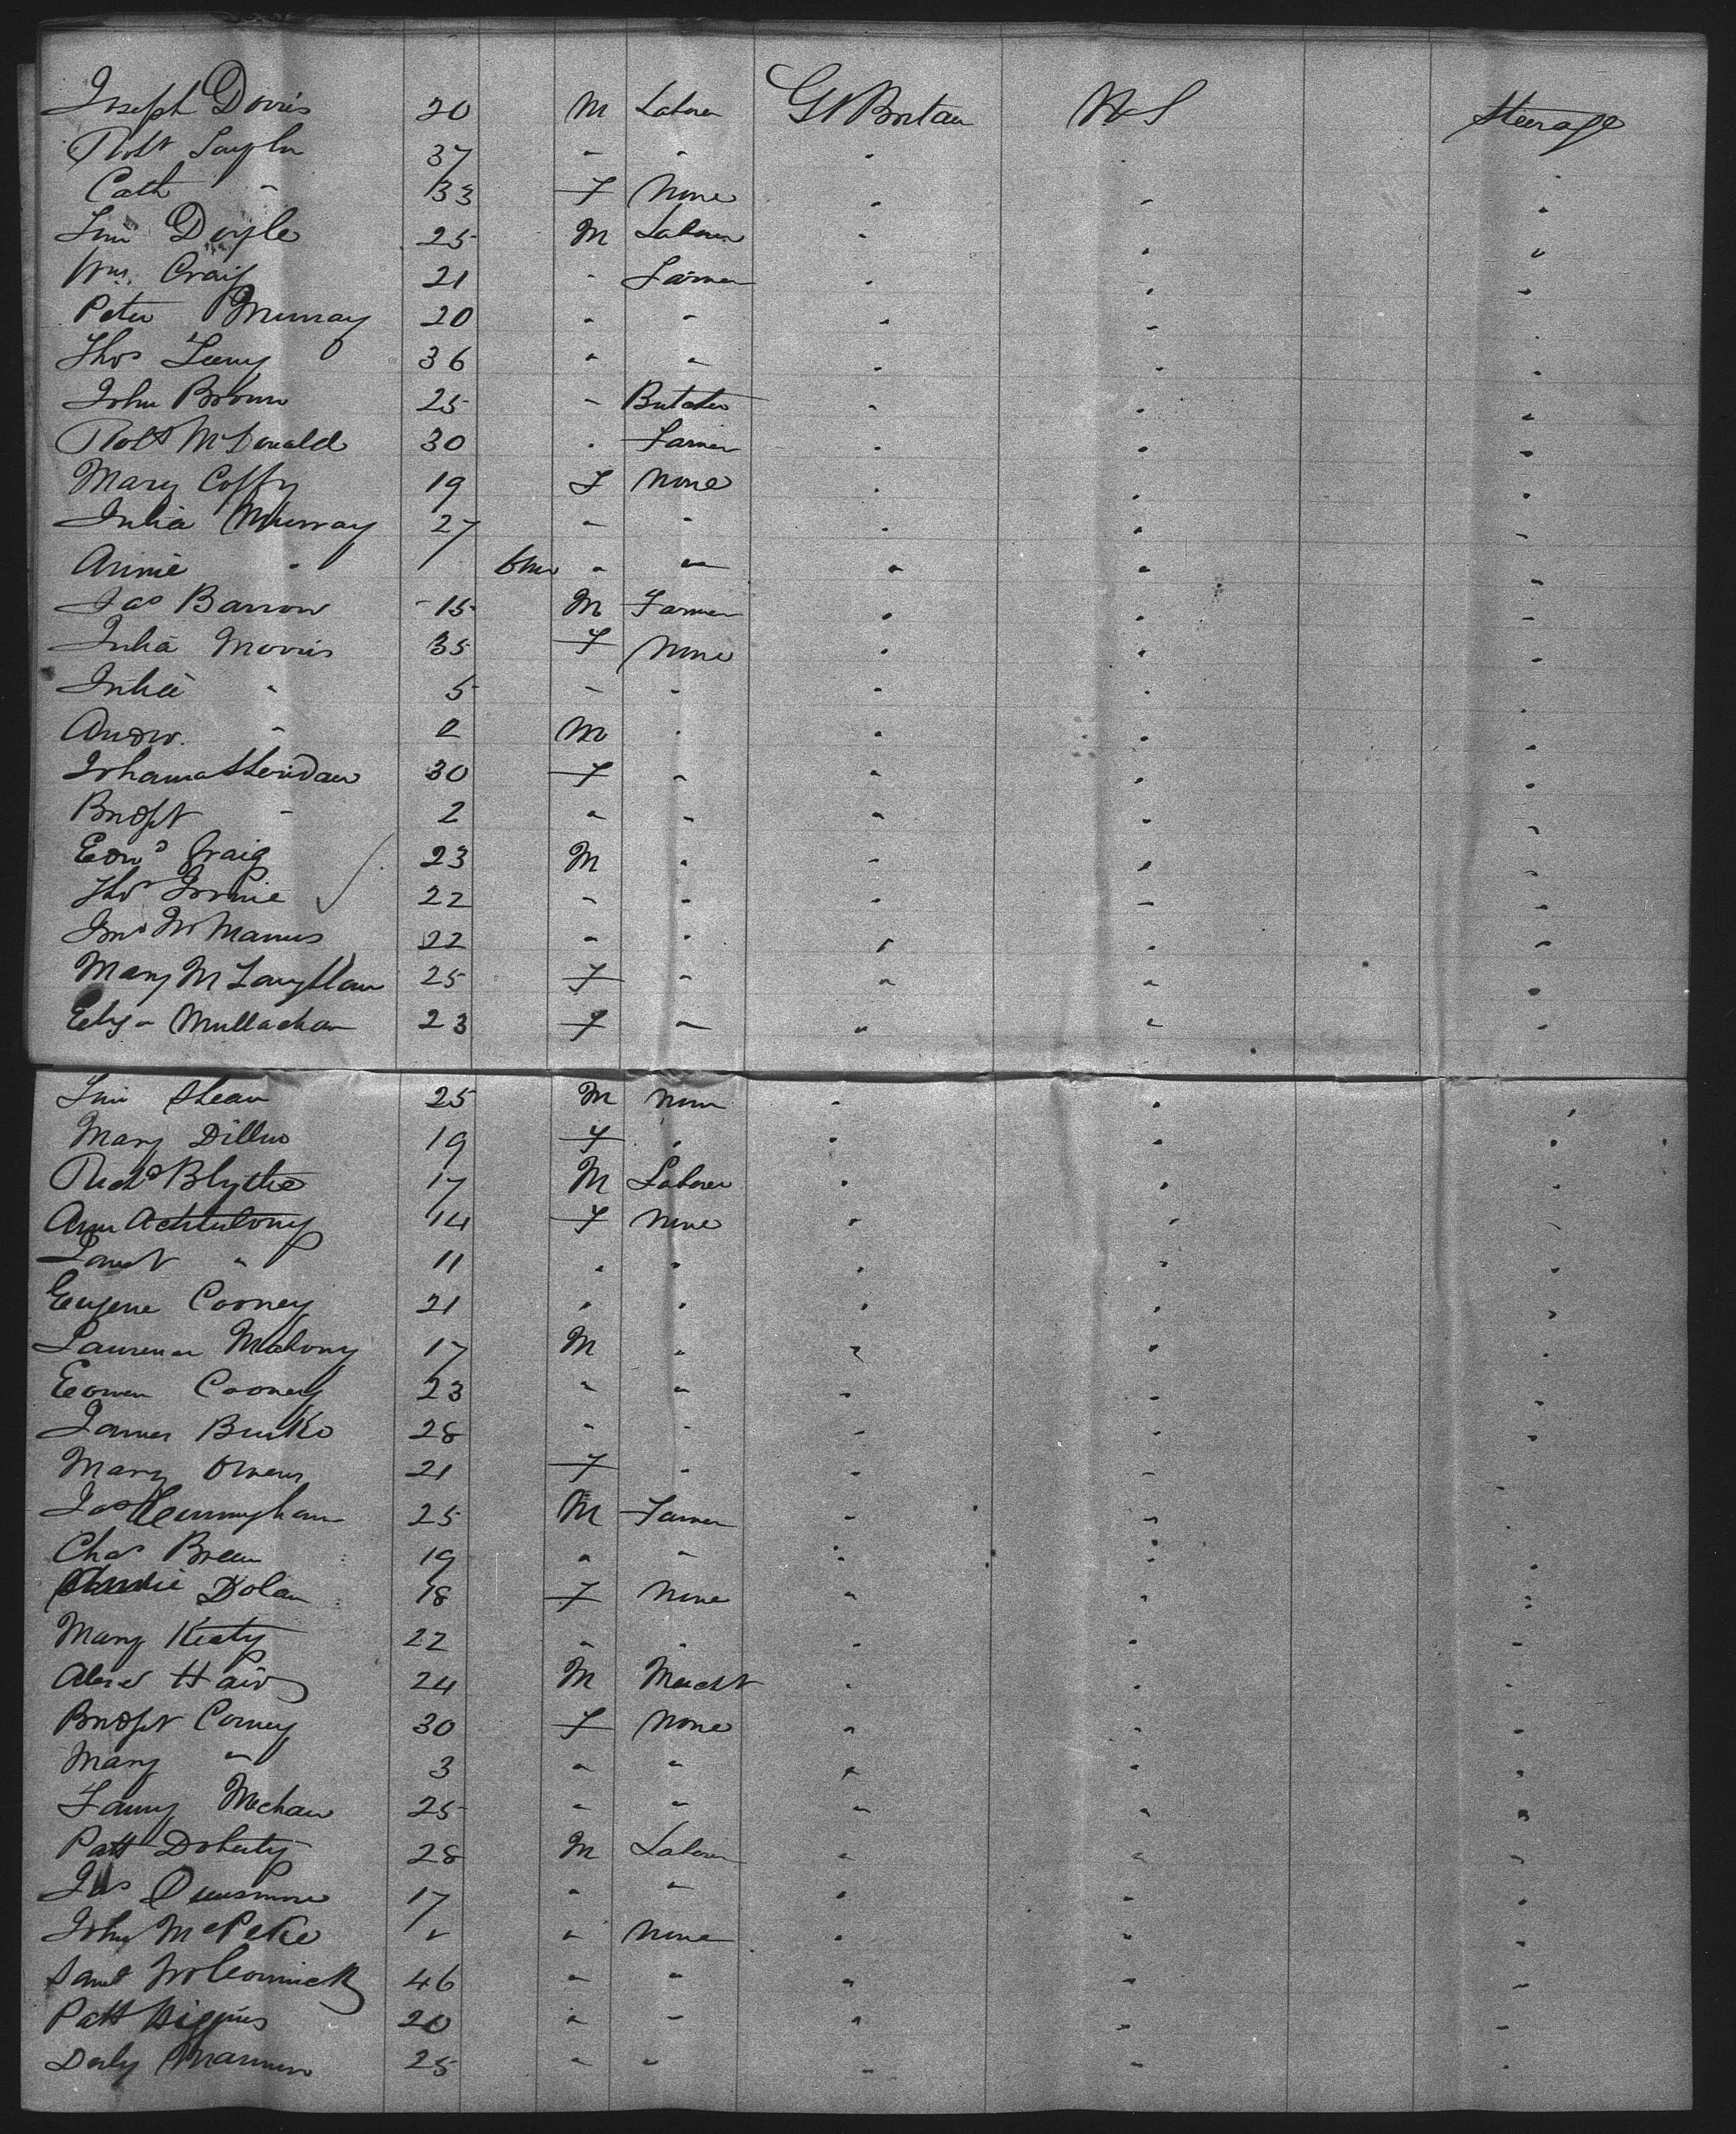 Joseph Dorris 20 M Laborer Gt Britain U S Steerage
Robt Taylor 37 " " " " "
Cath " 33 F None " " "
Jim Doyle 25 M Laborer " " "
Wm. Craig 21 " Farmer " " "
Peter Murray 20 " " " " "
Thos Leery 36 " " " " "
John Brown 25 " Butcher " " "
Robt McDonald 30 " Farmer " " "
Mary Coffy 19 F None " " "
Julia Murray 27 " " " " "
Annie " 6 mo " " " " "
Jas Barron 15 M Farmer " " "
Julia Morris 35 F None " " "
Julia " 5 " " " " "
Andw. " 2 M " " " "
Johanna Sheridan 30 F " " " "
Bridgt " 2 " " " " "
Edwd Craig 23 M " " " "
Thos Irvine 22 " " " " "
Jno McManus 22 " " " " "
Mary McLaughlan 25 F " " " "
Eliza Mullachan 23 F " " " "
Jim Shean 25 M None " " "
Mary Dillon 19 F " " " "
Richd Blythe 17 M Laborer " " "
Ann 14 F None " " "
Janet " 11 " " " " "
Eugene Cooney 21 " " " " "
Laurence Malony 17 M " " " "
Edwin Cooney 23 " " " " "
James Burke 28 " " " " "
Mary Owens 21 F " " " "
Jas Cunningham 25 M Farmer " " "
Chas Breen 19 " " " " "
Dolan 18 F None " " "
Mary Keaty 22 " " " " "
Alexr Hair 24 M Mercht " " "
Bridgt Corney 30 F None " " "
Mary " 3 " " " " "
Fanny Mechan 25 " " " " "
Patt Doherty 28 M Laborer " " "
Jas Dunsmore 17 " " " " "
John McPeke " " None " " "
Saml McCormick 46 " " " " "
Patt Higgins 20 " " " " "
Daly 25 " " " " "